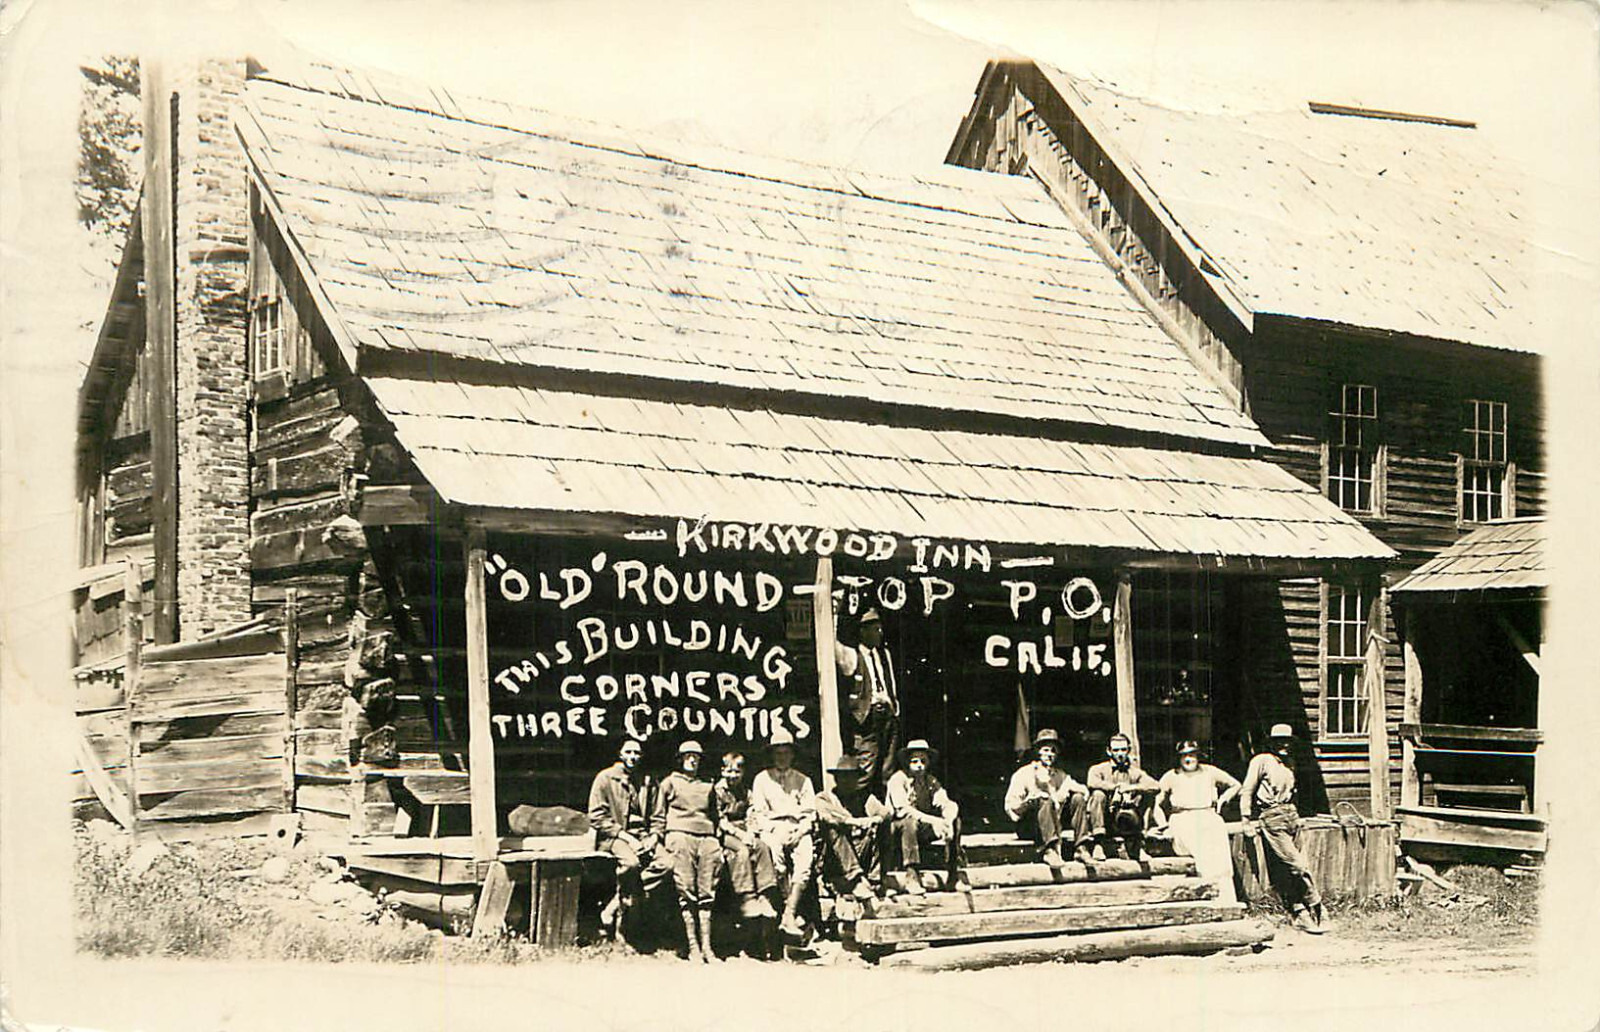 — KIRKWOOD INN —
"OLD" ROUND-TOP P.O.
CALIF.
THIS BUILDING
CORNERS
THREE COUNTIES